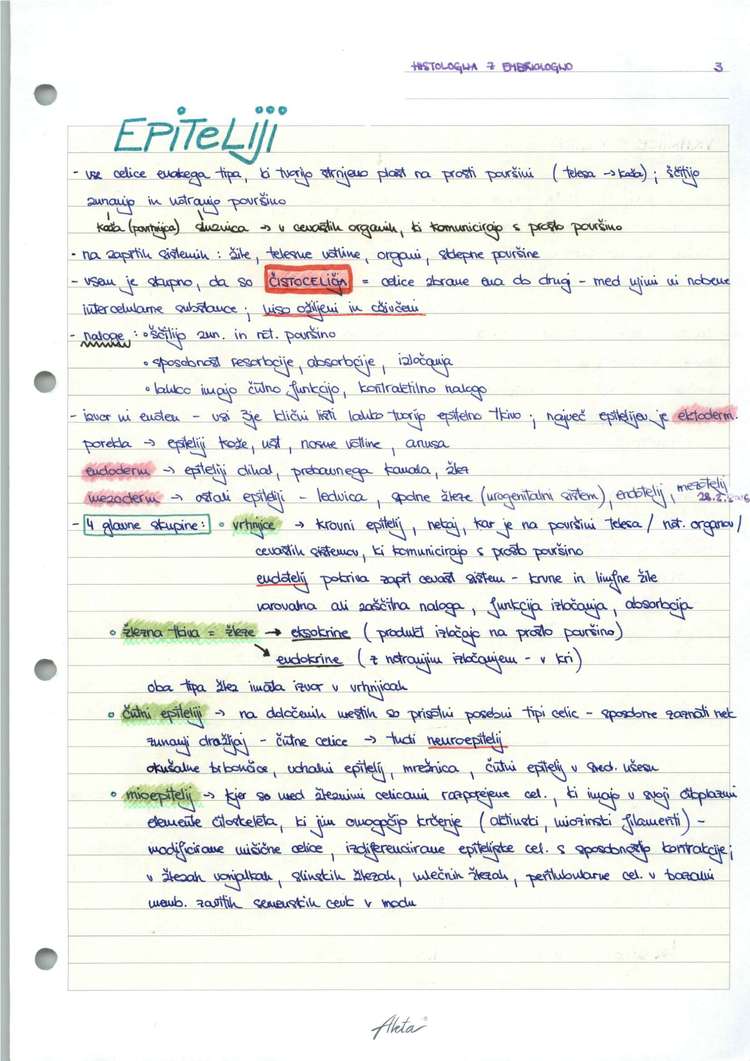 HISTOLOGIJA Z EMBRIOLOGIJO 3
EPITELIJI
- vse celice enakega tipa, ki tvorijo strnjeno plast na prosti površini ( telesa → koža) ; ščitijo
zunanjo in notranjo površino
koža (povrhnjica) sluznica → v cevastih organih, ki komunicirajo s prosto površino
- na zaprtih sistemih : žile, telesne votline, organi, sklepne površine
- vsem je skupno, da so ČISTOCELIČJA = celice zbrane ena do drugi - med njimi ni nobene
intercelularne substance ; niso ožiljeni in oživčeni
- naloge : • ščitijo zun. in not. površino
• sposobnost resorbcije, absorbcije, izločanja
• lahko imajo čutno funkcijo, kontraktilno nalogo
- izvor ni enoten - vsi 3je klični listi lahko tvorijo epitelno tkivo ; največ epitelijev je ektoderm.
porekla → epiteliji kože, ust, nosne votline, anusa
endoderm → epiteliji dihal, prebavnega kanala, žlez
mezoderm → ostali epiteliji - ledvica, spolne žleze (urogenitalni sistem), endotelij, mezotelij
- 4 glavne skupine : • vrhnjice → krovni epitelij, nekaj, kar je na površini telesa / not. organov /
cevastih sistemov, ki komunicirajo s prosto površino
endotelij pokriva zaprt cevast sistem - krvne in limfne žile
varovalna ali zaščitna naloga, funkcija izločanja, absorbcija
• žlezna tkiva = žleze → eksokrine ( produkt izločajo na prosto površino)
→ endokrine ( z notranjim izločanjem - v kri )
oba tipa žlez imata izvor v vrhnjicah
• čutni epiteliji → na določenih mestih so prisotni posebni tipi celic - sposobne zaznati nek
zunanji dražljaj - čutne celice → tudi neuroepitelij
okušalne brbončice, vohalni epitelij, mrežnica, čutni epitelij v sred. ušesu
• mioepitelij → kjer so med žleznimi celicami razporejene cel., ki imajo v svoji citoplazmi
elemente citoskeleta, ki jim omogočijo krčenje ( aktinski, miozinski filamenti) -
modificirane mišične celice, izdiferencirane epitelijske cel. s sposobnostjo kontrakcije;
v žlezah znojalkah, slinskih žlezah, mlečnih žlezah, peritubularne cel. v bazalni
memb. zavitih semenskih cevk v modu
Aleta